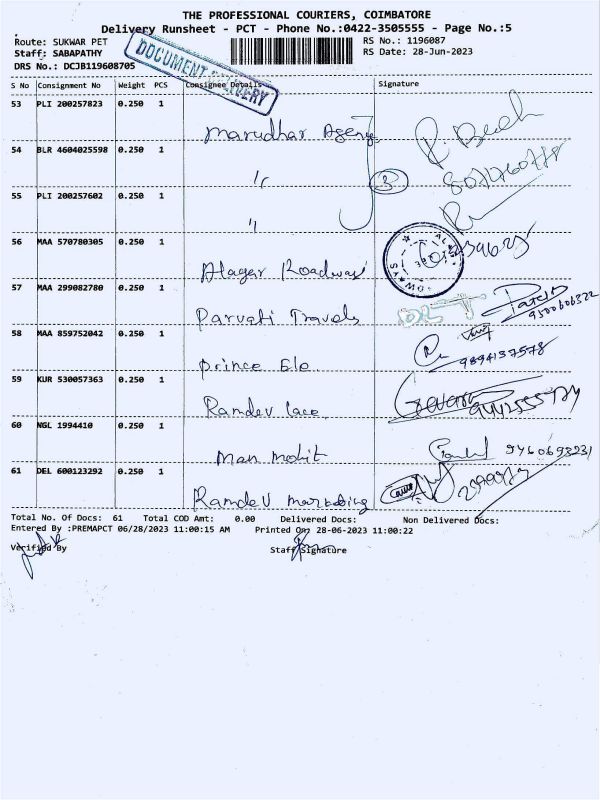 THE PROFESSIONAL COURIERS, COIMBATORE
Delivery Runsheet - PCT - Phone No.:0422-3505555 - Page No.:5
Route: SUKWAR PET
RS No.: 1196087
Staff: SABAPATHY
RS Date: 28-Jun-2023
DRS No.: DCJB119608705
DOCUMENT DELIVERY
S No Consignment No Weight PCS Consignee Details Signature
53 PLI 200257823 0.250 1
Marudhar Agency
54 BLR 4604025598 0.250 1
"
3
55 PLI 200257602 0.250 1
"
56 MAA 570780305 0.250 1
Alagar Roadways
57 MAA 299082780 0.250 1
Parvati Travels
9500606322
58 MAA 859752042 0.250 1
Prince Ele
9894137578
59 KUR 530057363 0.250 1
Ramdev lace
60 NGL 1994410 0.250 1
Man mohit
61 DEL 600123292 0.250 1
Ramdev marketing
Total No. Of Docs: 61 Total COD Amt: 0.00 Delivered Docs: Non Delivered Docs:
Entered By :PREMAPCT 06/28/2023 11:00:15 AM Printed On: 28-06-2023 11:00:22
Verified By
Staff Signature